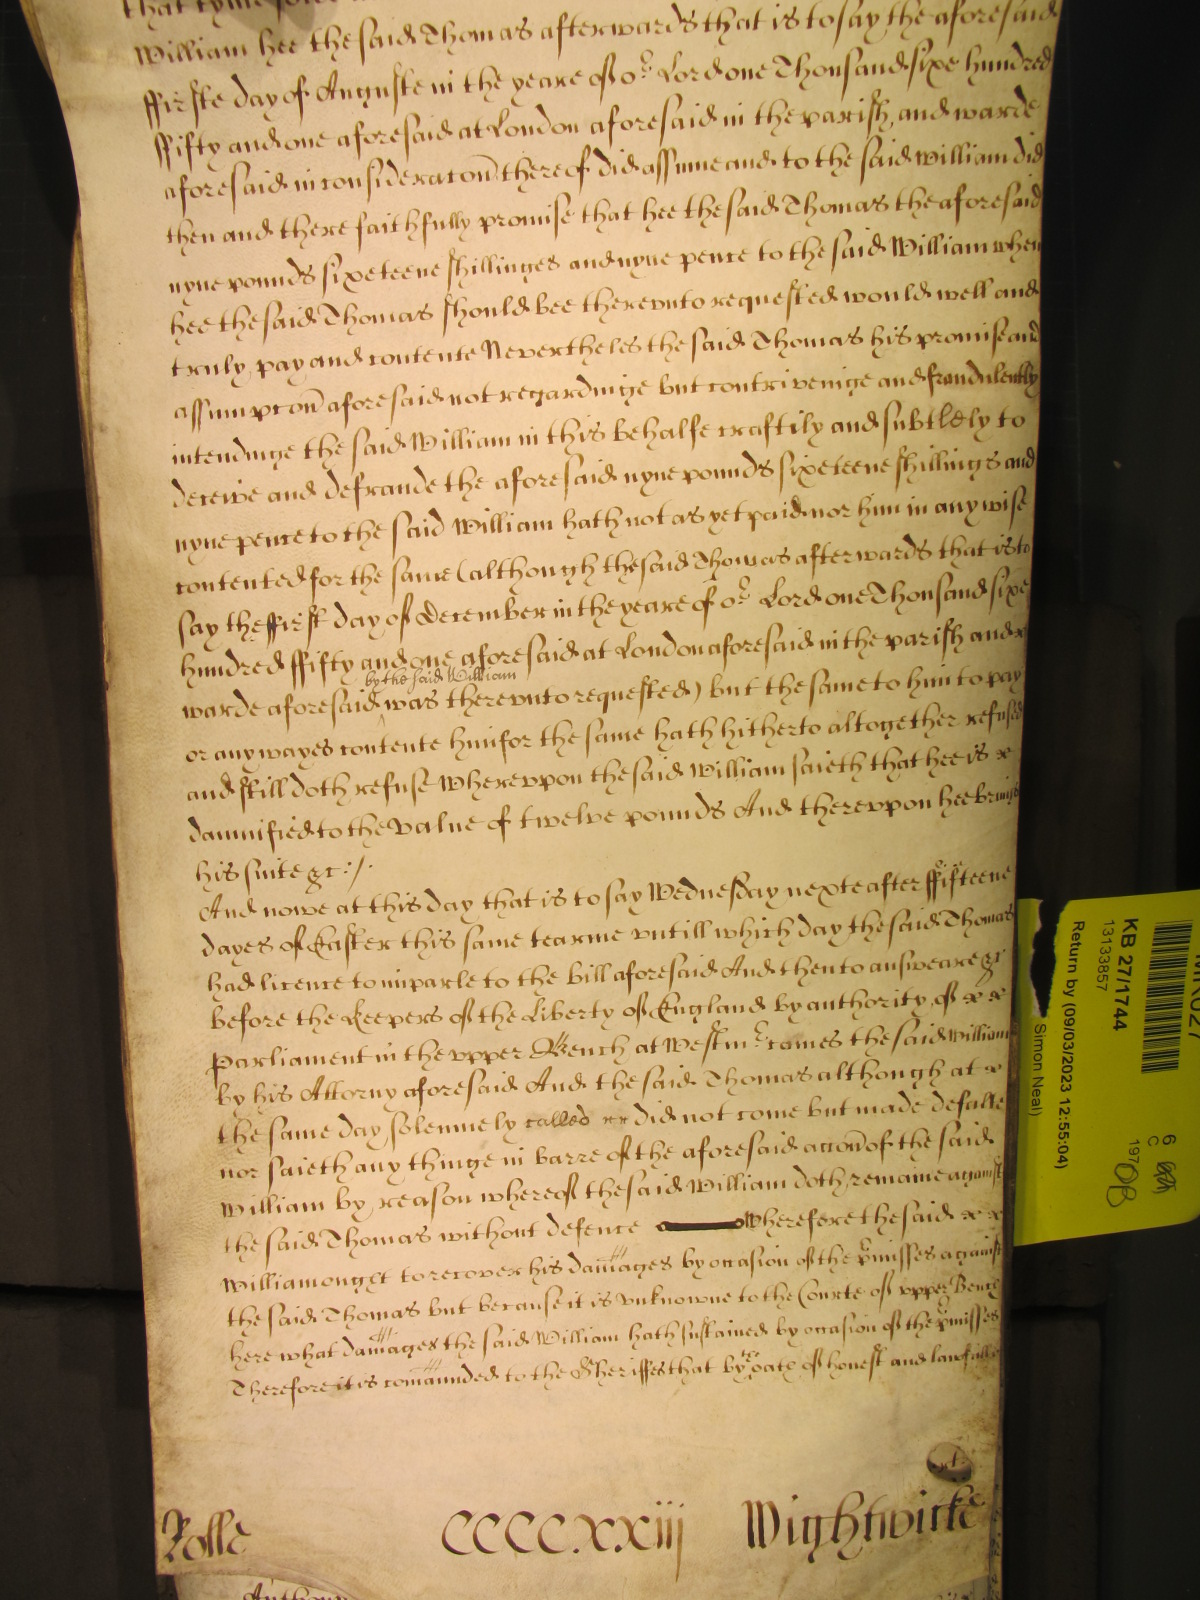 that tyme
William hee the said Thomas afterwards that is to say the aforesaid
ffirste day of Auguste in the yeare of or Lord one Thousand sixe hundred
ffifty and one aforesaid at London aforesaid in the parish and warde
aforesaid in consideracon thereof did assume and to the said William did
then and there faithfully promise that hee the said Thomas the aforesaid
nyne pounds sixeteene shillinges and nyne pence to the said William when
hee the said Thomas should bee therevnto requested would well and
truly pay and contente Nevertheles the said Thomas his promise and
assumpcon aforesaid not regardinge but contrivenige and fraudulently
intendinge the said William in this behalfe craftily and subtlely to
deceive and defraude the aforesaid nyne pounds sixeteene shillings and
nyne pence to the said William hath not as yet paid nor him in any wise
contented for the same (although the said Thomas afterwards that is to
say the ffirst day of December in the yeare of or Lord one Thousand sixe
hundred ffifty and one aforesaid at London aforesaid in the parish and
by the said William
warde aforesaid was therevnto requested) but the same to him to pay
or any wayes contente him for the same hath hitherto altogether refused
and still doth refuse Wherevpon the said William saieth that hee is
damnified to the value of twelve pounds And therevpon hee brings
his suite &c:/.
And nowe at this day that is to say Wednesday nexte after ffifteene
dayes of Easter this same tearme vntill which day the said Thomas
had licence to imparle to the bill aforesaid And then to answeare &c
before the Keepers of the Liberty of England by authority of
Parliament in the vpper Bench at Westmr comes the said William
by his Attorny aforesaid And the said Thomas although at
the same day solemnely called did not come but made defalte
nor saieth any thinge in barre of the aforesaid accon of the said
William by reason whereof the said William doth remaine against
the said Thomas without defence Wherefore the said
William ought to recover his damages by occasion of the pmisses against
the said Thomas but because it is vnknowne to the Courte of vpper Bench
here what damages the said William hath sustained by occasion of the pmisses
Therefore it is comaunded to the Sheriffes that by the oath of honest and lawfull
Rolle CCCCXXiij Wightwicke
KB 27/1744
13133857
Return by (09/03/2023 12:55:04)
Simon Neal)
6
C
197